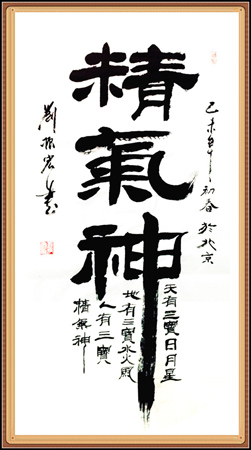 精氣神
己未年初春於北京
天有三寶日月星
地有三寶水火風
人有三寶
精氣神